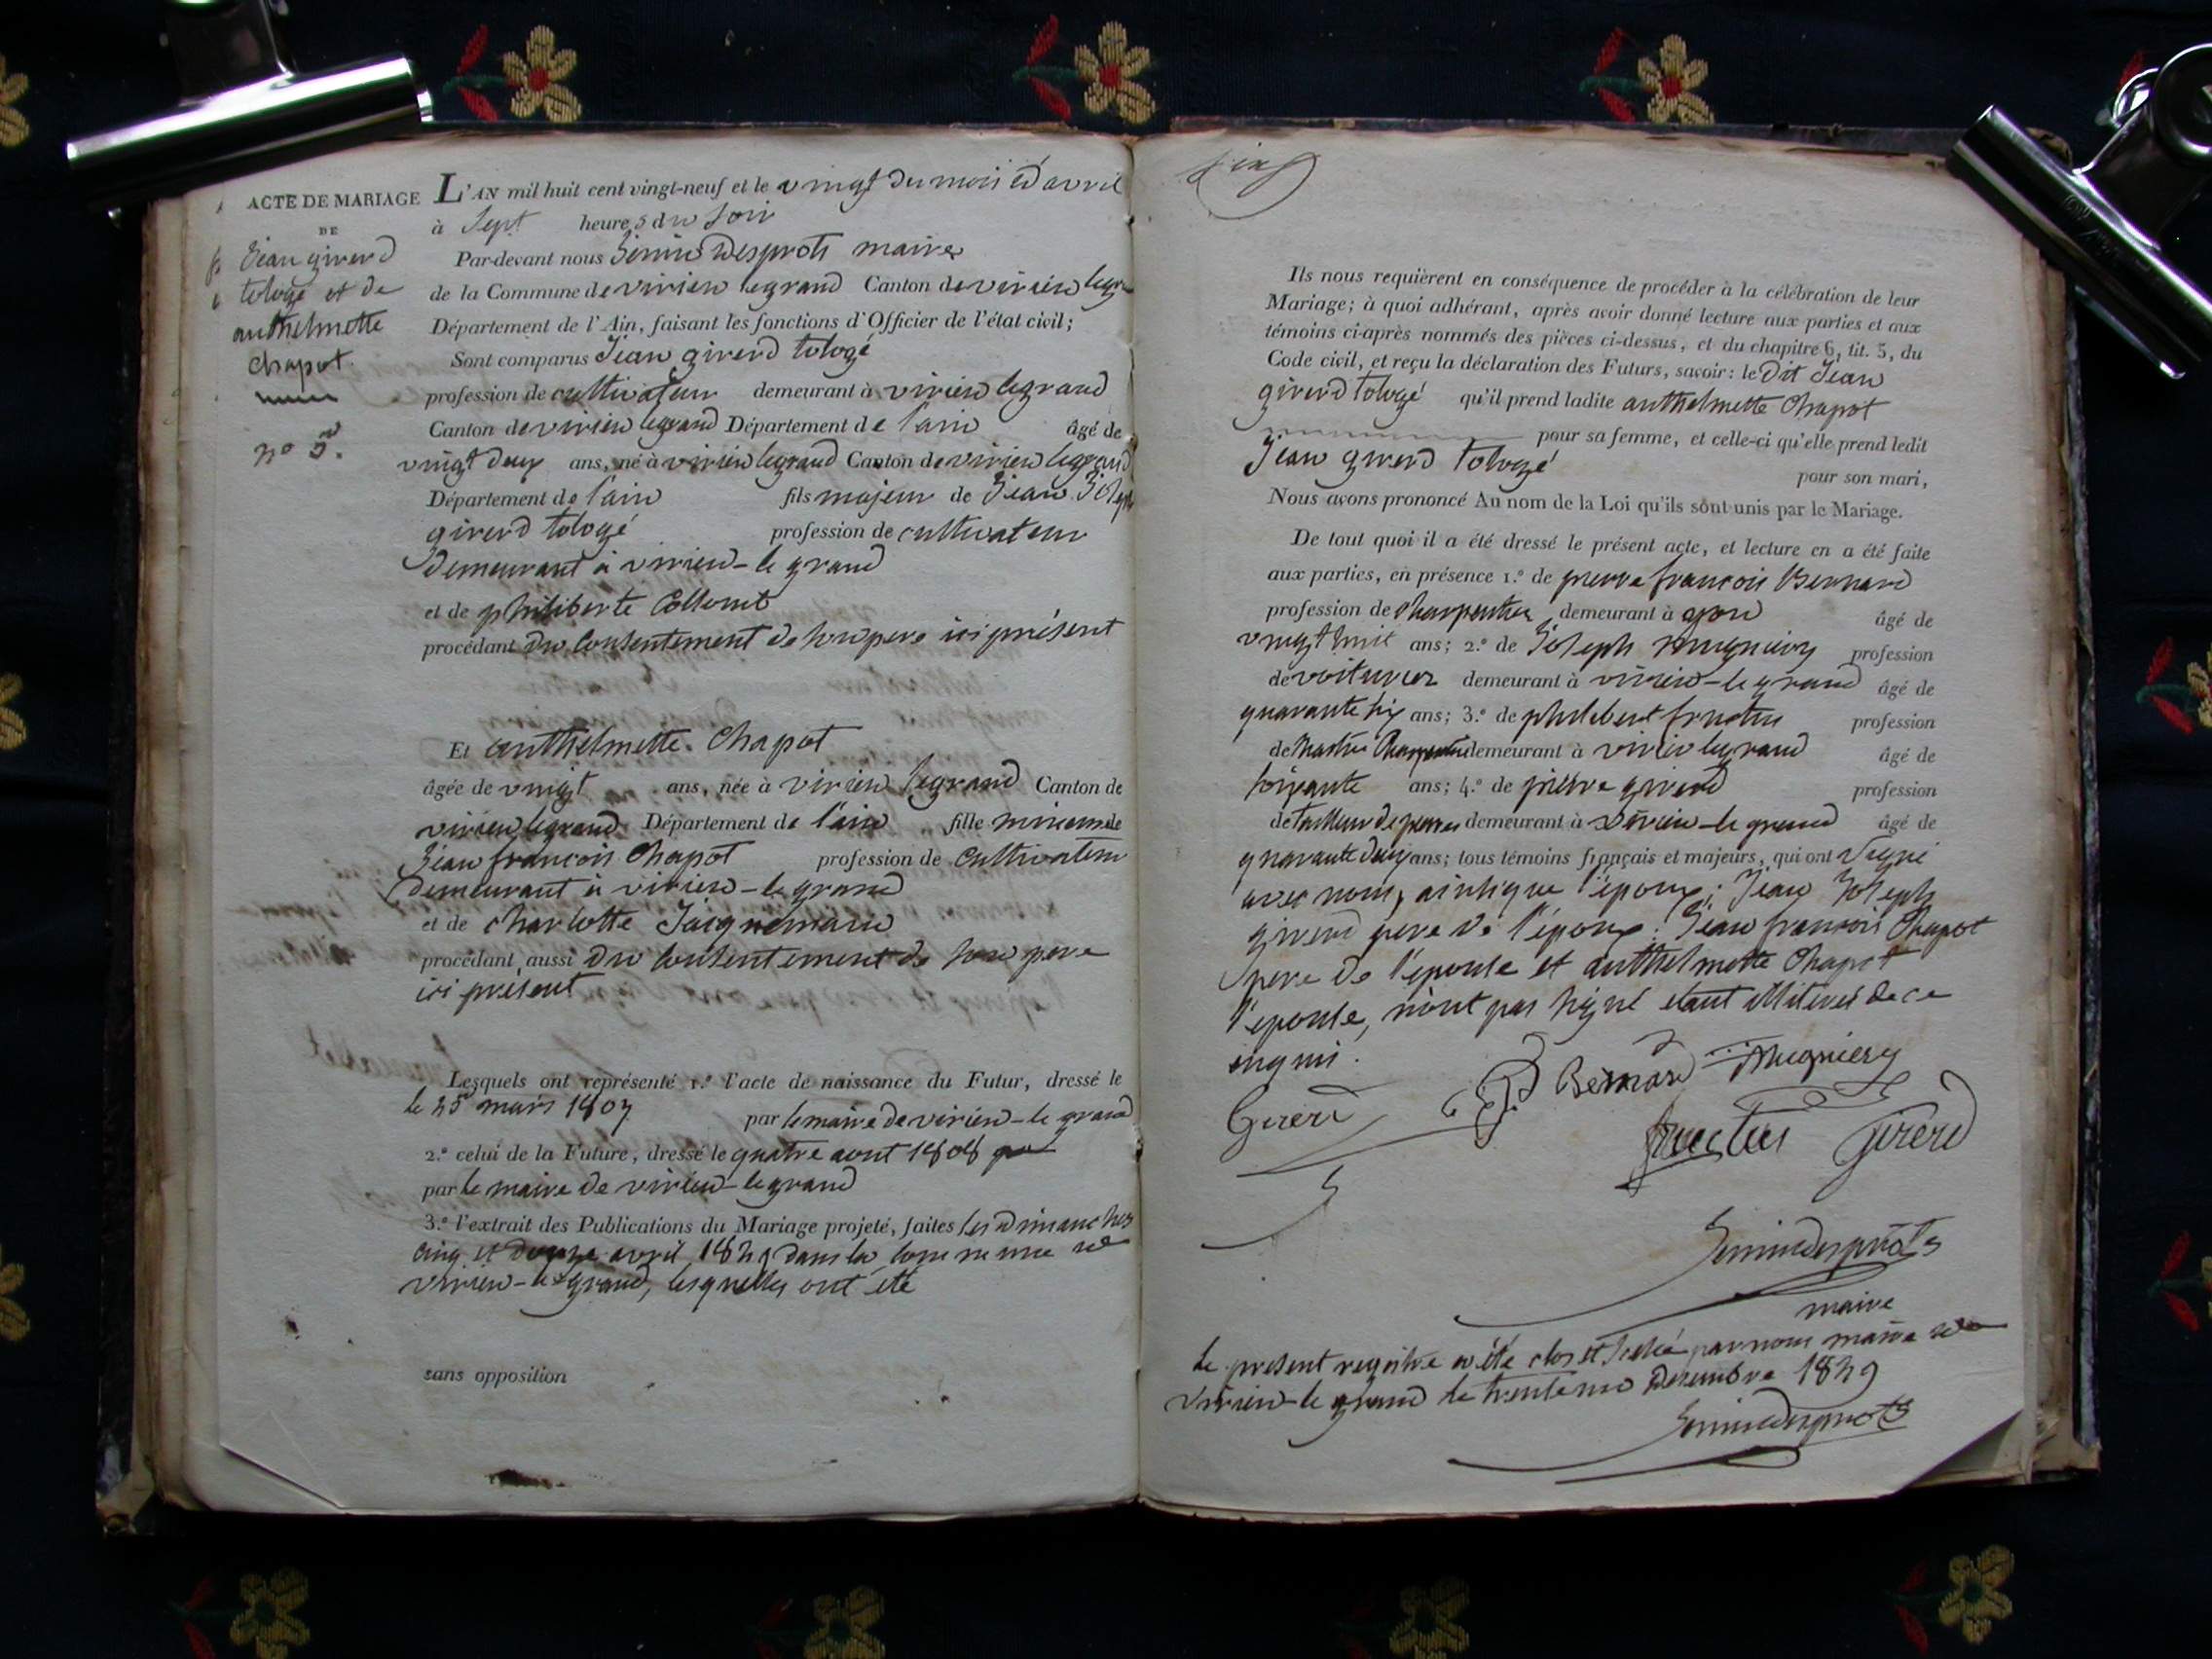 ACTE DE MARIAGE
DE
Jean girerd
tologé et de
anthelmette
Chapot
no 5.
L'AN mil huit cent vingt-neuf et le vingt du mois d'avril
à Sept heures du soir
Par-devant nous desprots maire
de la Commune de virieu legrand Canton de virieu legrand
Département de l'Ain, faisant les fonctions d'Officier de l'état civil;
Sont comparus Jean girerd tologé
profession de cultivateur demeurant à virieu legrand
Canton de virieu legrand Département de l'ain âgé de
vingt deux ans, né à virieu legrand Canton de virieu legrand
Département de l'ain fils majeur de Jean Joseph
girerd tologé profession de cultivateur
demeurant à virieu-le grand
et de philiberte
procédant du consentement de son pere ici présent
Et anthelmette Chapot
âgée de vingt ans, née à virieu legrand Canton de
virieu legrand Département de l'ain fille mineure de
Jean francois Chapot profession de cultivateur
demeurant à virieu-le grand
et de charlotte Jacquemain
procédant aussi du consentement de son pere
ici présent
Lesquels ont représenté 1.° l'acte de naissance du Futur, dressé le
le mars 1807 par le maire de virieu-le grand
2.° celui de la Future, dressé le quatre aout 1808
par le maire de virieu-legrand
3.° l'extrait des Publications du Mariage projeté, faites les dimanches
cinq et douze avril 1829 dans la commune de
virieu-le grand, lesquelles ont été
sans opposition
Ils nous requièrent en conséquence de procéder à la célébration de leur
Mariage; à quoi adhérant, après avoir donné lecture aux parties et aux
témoins ci-après nommés des pièces ci-dessus, et du chapitre 6, tit. 5, du
Code civil, et reçu la déclaration des Futurs, savoir: le dit Jean
girerd tologé qu'il prend ladite anthelmette Chapot
pour sa femme, et celle-ci qu'elle prend ledit
Jean girerd tologé pour son mari,
Nous avons prononcé Au nom de la Loi qu'ils sont unis par le Mariage.
De tout quoi il a été dressé le présent acte, et lecture en a été faite
aux parties, en présence 1.° de pierre francois Bernard
profession de charpentier demeurant à âgé de
vingt huit ans; 2.° de Joseph mugniery profession
de voiturier demeurant à virieu-le grand âgé de
quarante six ans; 3.° de philibert fructus profession
de maitre charpentier demeurant à virieu legrand âgé de
soixante ans; 4.° de pierre girerd profession
de tailleur de pierres demeurant à virieu-le grand âgé de
quarante deux ans; tous témoins français et majeurs, qui ont signé
avec nous, ainsi que l'époux; Jean Joseph
girerd pere de l'époux; Jean francois Chapot
pere de l'épouse et anthelmette Chapot
l'épouse, n'ont pas signé etant illiterés de ce
enquis.
Girerd Bernard Mugniery
fructus Girerd
desprots
maire
Le présent registre a été clos et par nous maire de
virieu-le grand le trente un décembre 1829
desprots